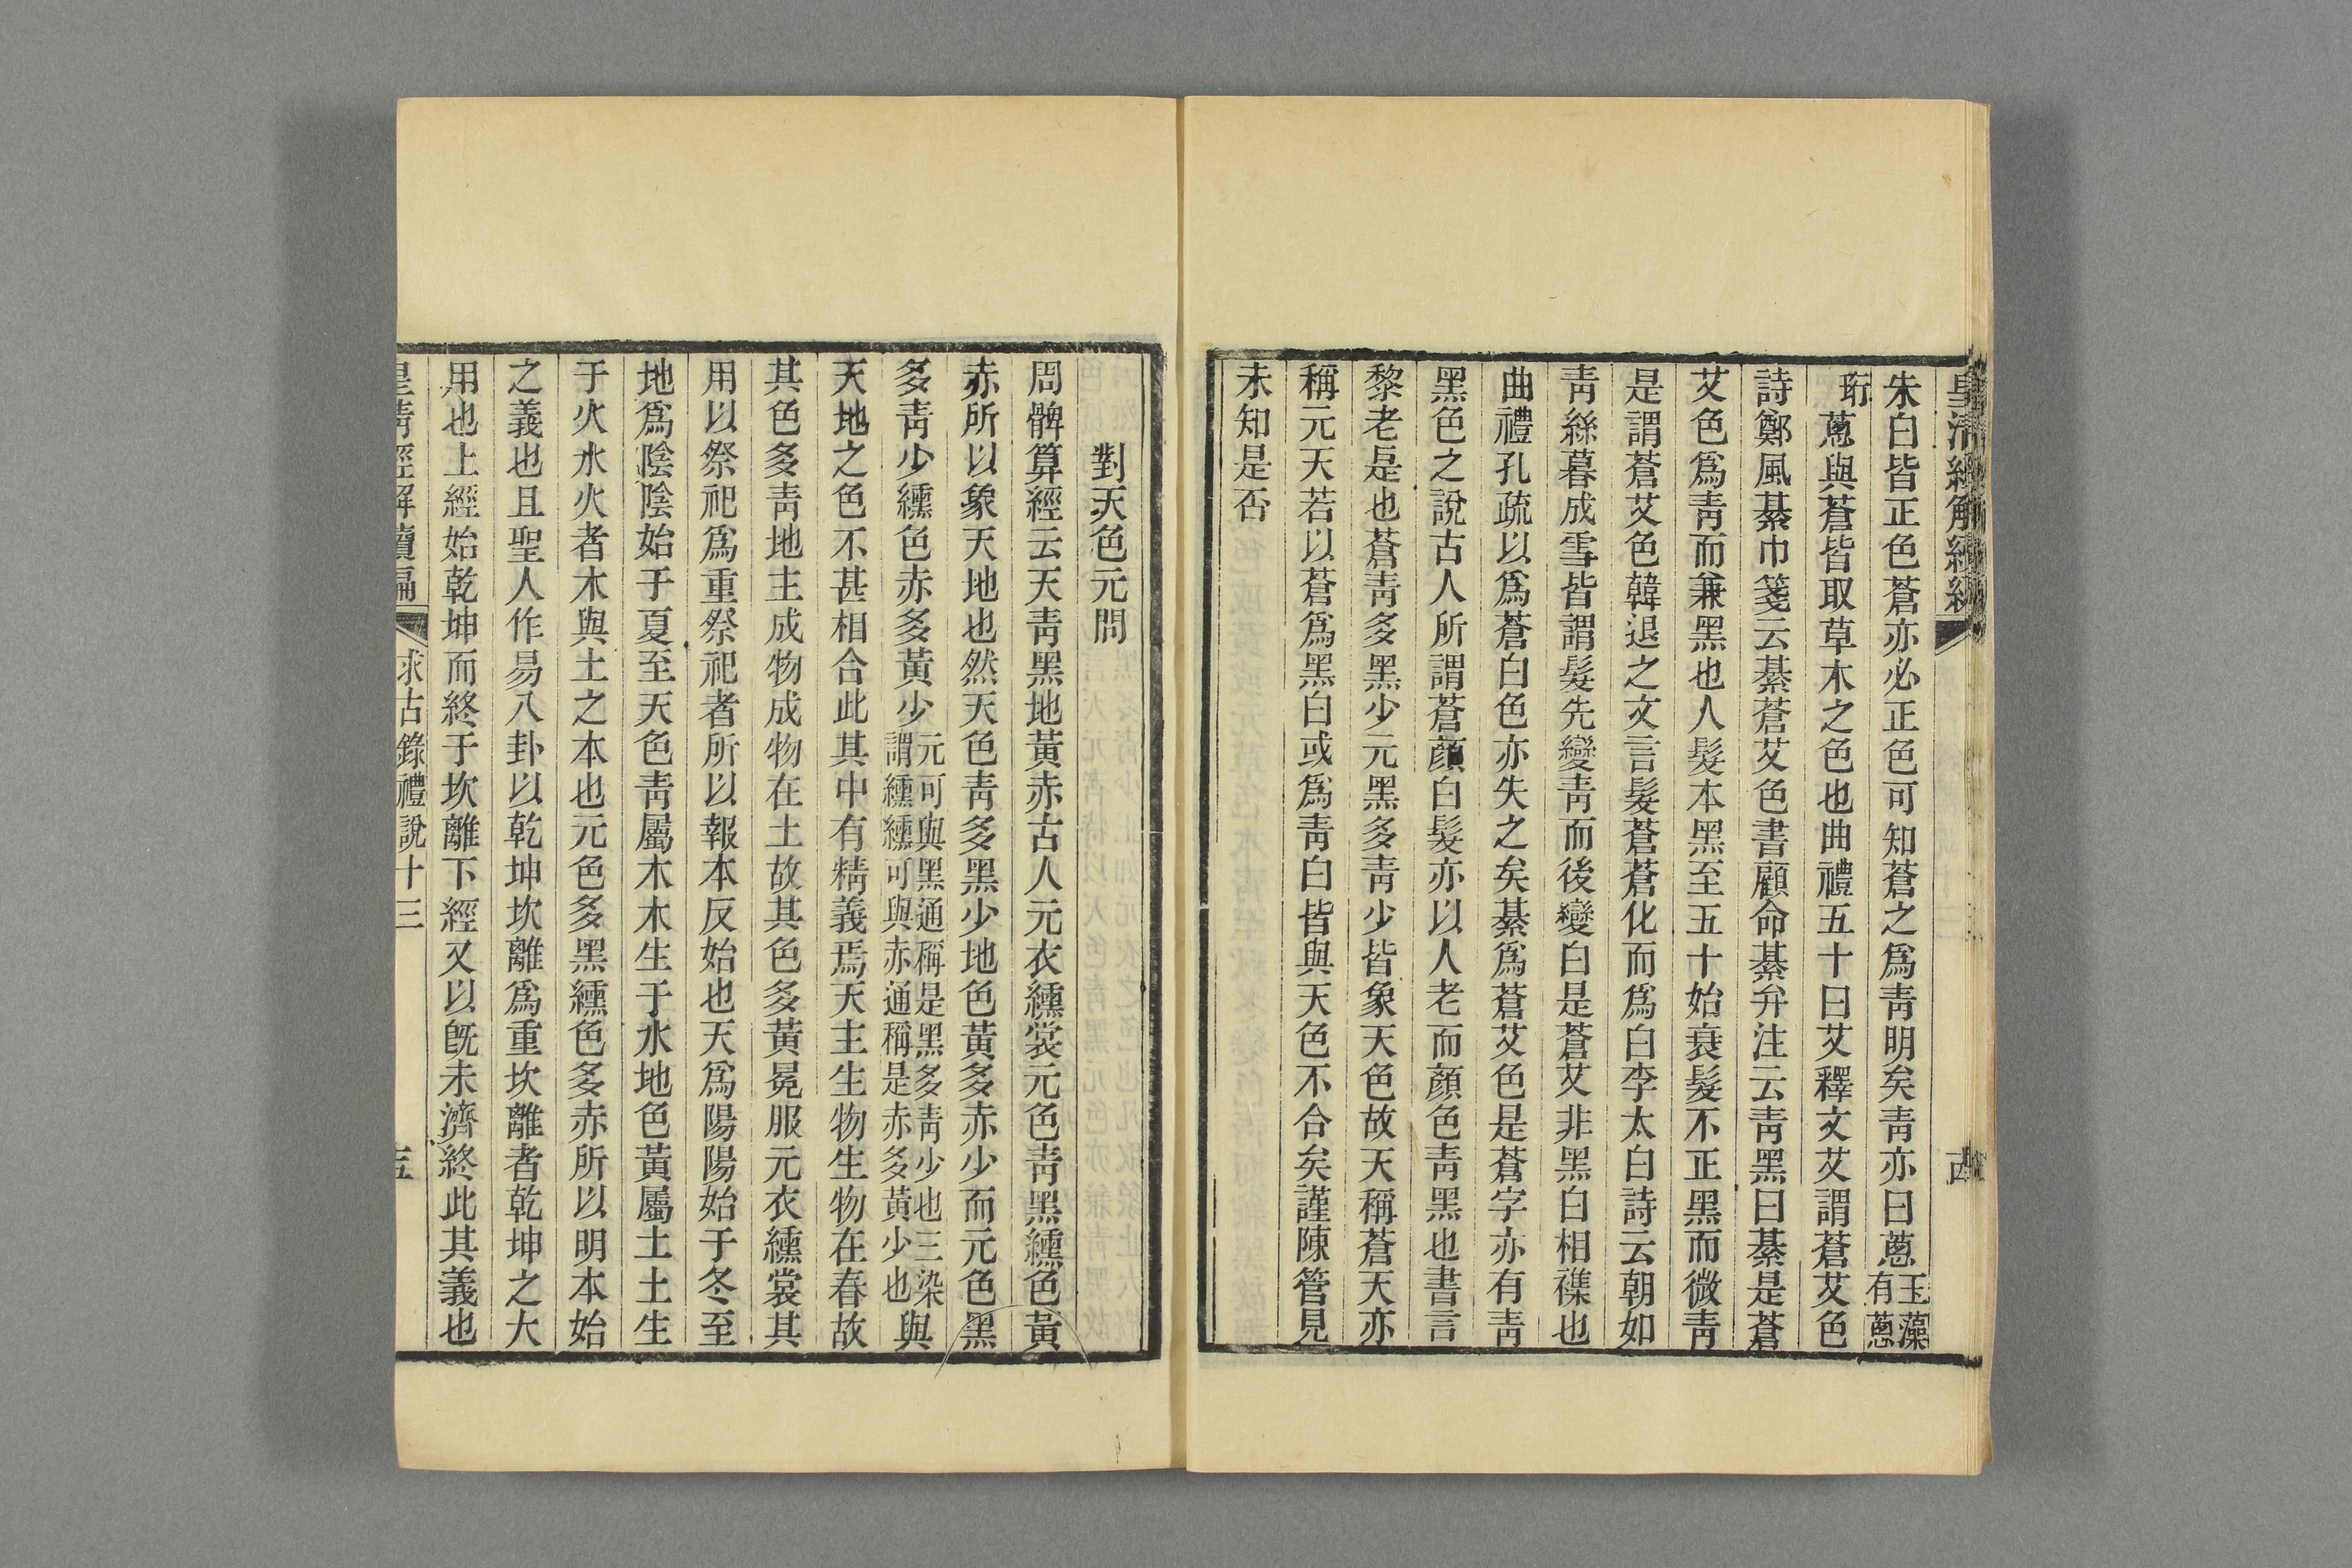 朱白皆正色蒼亦必正色可知蒼之爲靑明矣靑亦曰蔥玉藻有蔥
珩蔥與蒼皆取草木之色也曲禮五十曰艾釋文艾謂蒼艾色
詩鄭風綦巾箋云綦蒼艾色書顧命綦弁注云靑黑曰綦是蒼
艾色爲靑而兼黑也人髮本黑至五十始衰髮不正黑而微靑
是謂蒼艾色韓退之文言髮蒼蒼化而爲白李太白詩云朝如
靑絲暮成雪皆謂髮先變靑而後變白是蒼艾非黑白相襍也
曲禮孔疏以爲蒼白色亦失之矣綦爲蒼艾色是蒼字亦有靑
黑色之說古人所謂蒼顏白髮亦以人老而顏色靑黑也書言
黎老是也蒼靑多黑少元黑多靑少皆象天色故天稱蒼天亦
稱元天若以蒼爲黑白或爲靑白皆與天色不合矣謹陳管見
未知是否
對天色元問
周髀算經云天靑黑地黃赤古人元衣纁裳元色靑黑纁色黃
赤所以象天地也然天色靑多黑少地色黃多赤少而元色黑
多靑少纁色赤多黃少元可與黑通稱是黑多靑少也三染謂纁纁可與赤通稱是赤多黃少也與
天地之色不甚相合此其中有精義焉天主生物生物在春故
其色多靑地主成物成物在土故其色多黃冕服元衣纁裳其
用以祭祀爲重祭祀者所以報本反始也天爲陽陽始于冬至
地爲陰陰始于夏至天色靑屬木木生于水地色黃屬土土生
于火水火者木與土之本也元色多黑纁色多赤所以明本始
之義也且聖人作易八卦以乾坤坎離爲重坎離者乾坤之大
用也上經始乾坤而終于坎離下經又以旣未濟終此其義也
皇淸經解續編 求古錄禮說十三